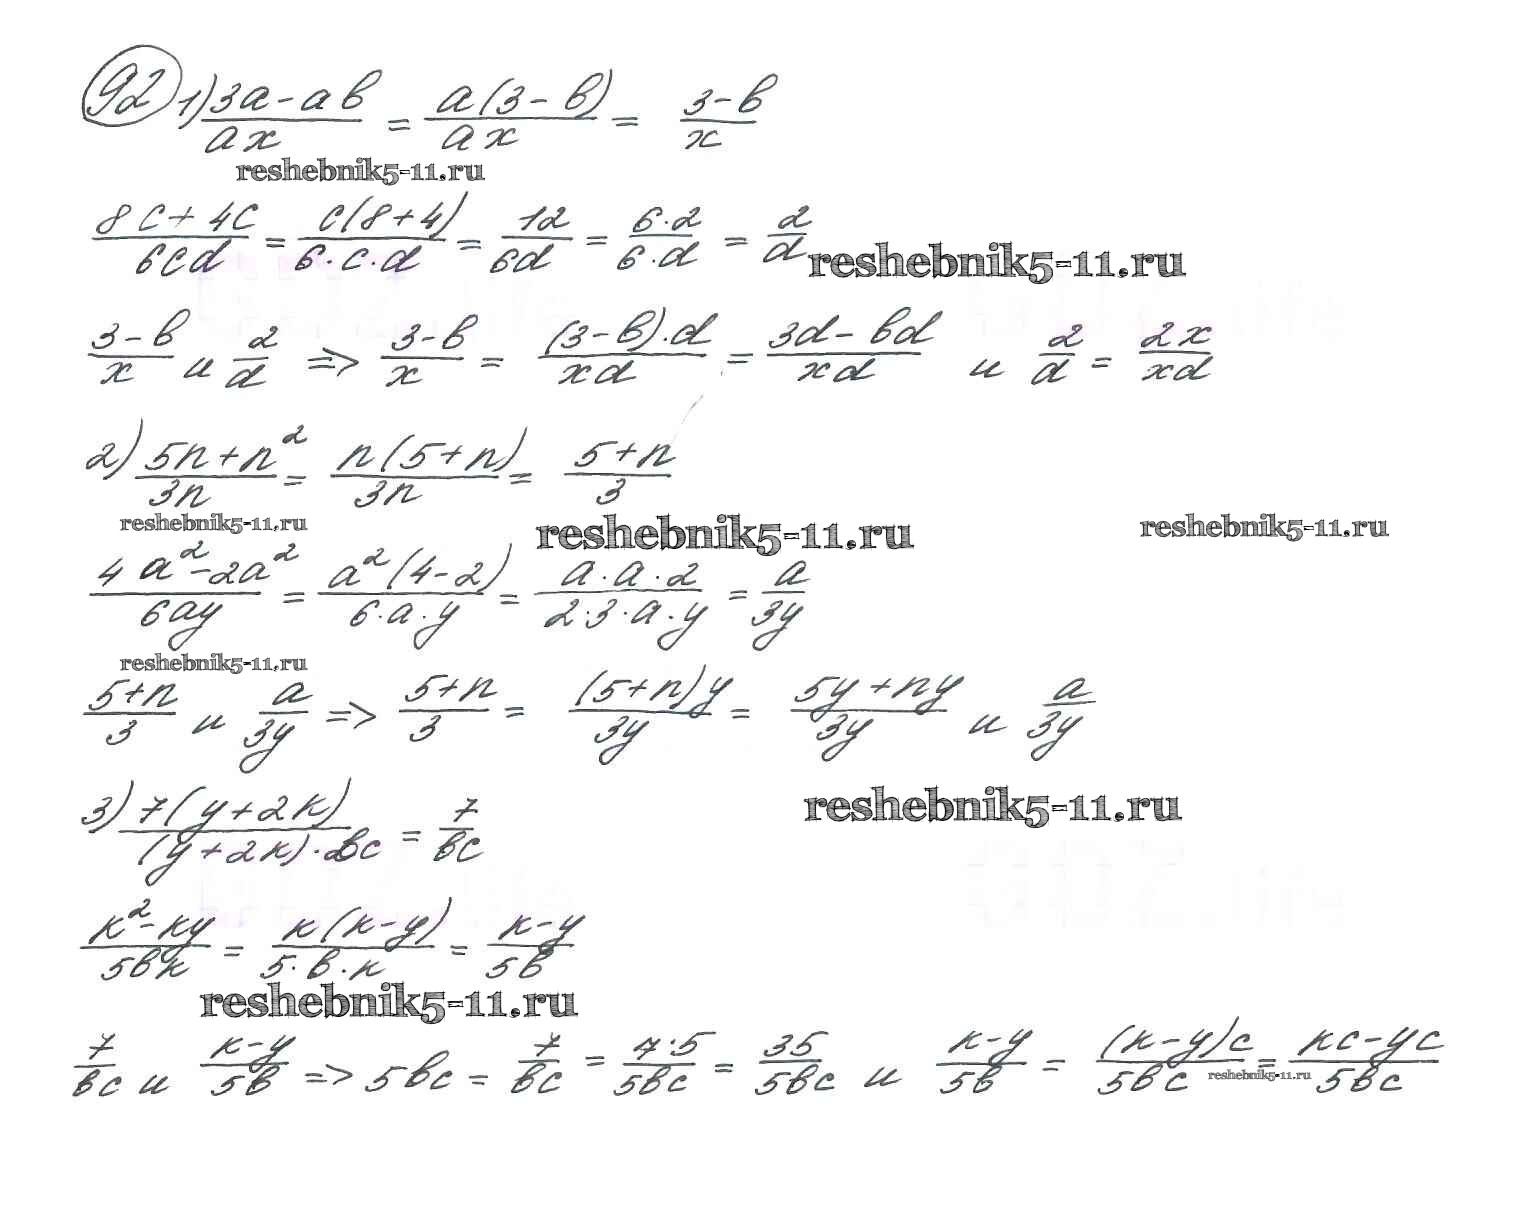 92 1) (3a - ab)/(ax) = a(3 - b)/(ax) = (3 - b)/x
reshebnik5-11.ru
(8c + 4c)/(6cd) = c(8 + 4)/(6·c·d) = 12/(6d) = (6·2)/(6·d) = 2/d
reshebnik5-11.ru
(3 - b)/x и 2/d => (3 - b)/x = ((3 - b)·d)/(xd) = (3d - bd)/(xd) и 2/d = 2x/(xd)
2) (5n + n²)/(3n) = n(5 + n)/(3n) = (5 + n)/3
reshebnik5-11.ru reshebnik5-11.ru reshebnik5-11.ru
(4a² - 2a²)/(6ay) = a²(4 - 2)/(6·a·y) = (a·a·2)/(2·3·a·y) = a/(3y)
reshebnik5-11.ru
(5 + n)/3 и a/(3y) => (5 + n)/3 = ((5 + n)y)/(3y) = (5y + ny)/(3y) и a/(3y)
3) 7(y + 2k)/((y + 2k)·bc) = 7/(bc)
reshebnik5-11.ru
(k² - ky)/(5bk) = k(k - y)/(5·b·k) = (k - y)/(5b)
reshebnik5-11.ru
7/(bc) и (k - y)/(5b) => 5bc = 7/(bc) = (7·5)/(5bc) = 35/(5bc) и (k - y)/(5b) = ((k - y)c)/(5bc) = (kc - yc)/(5bc)
reshebnik5-11.ru